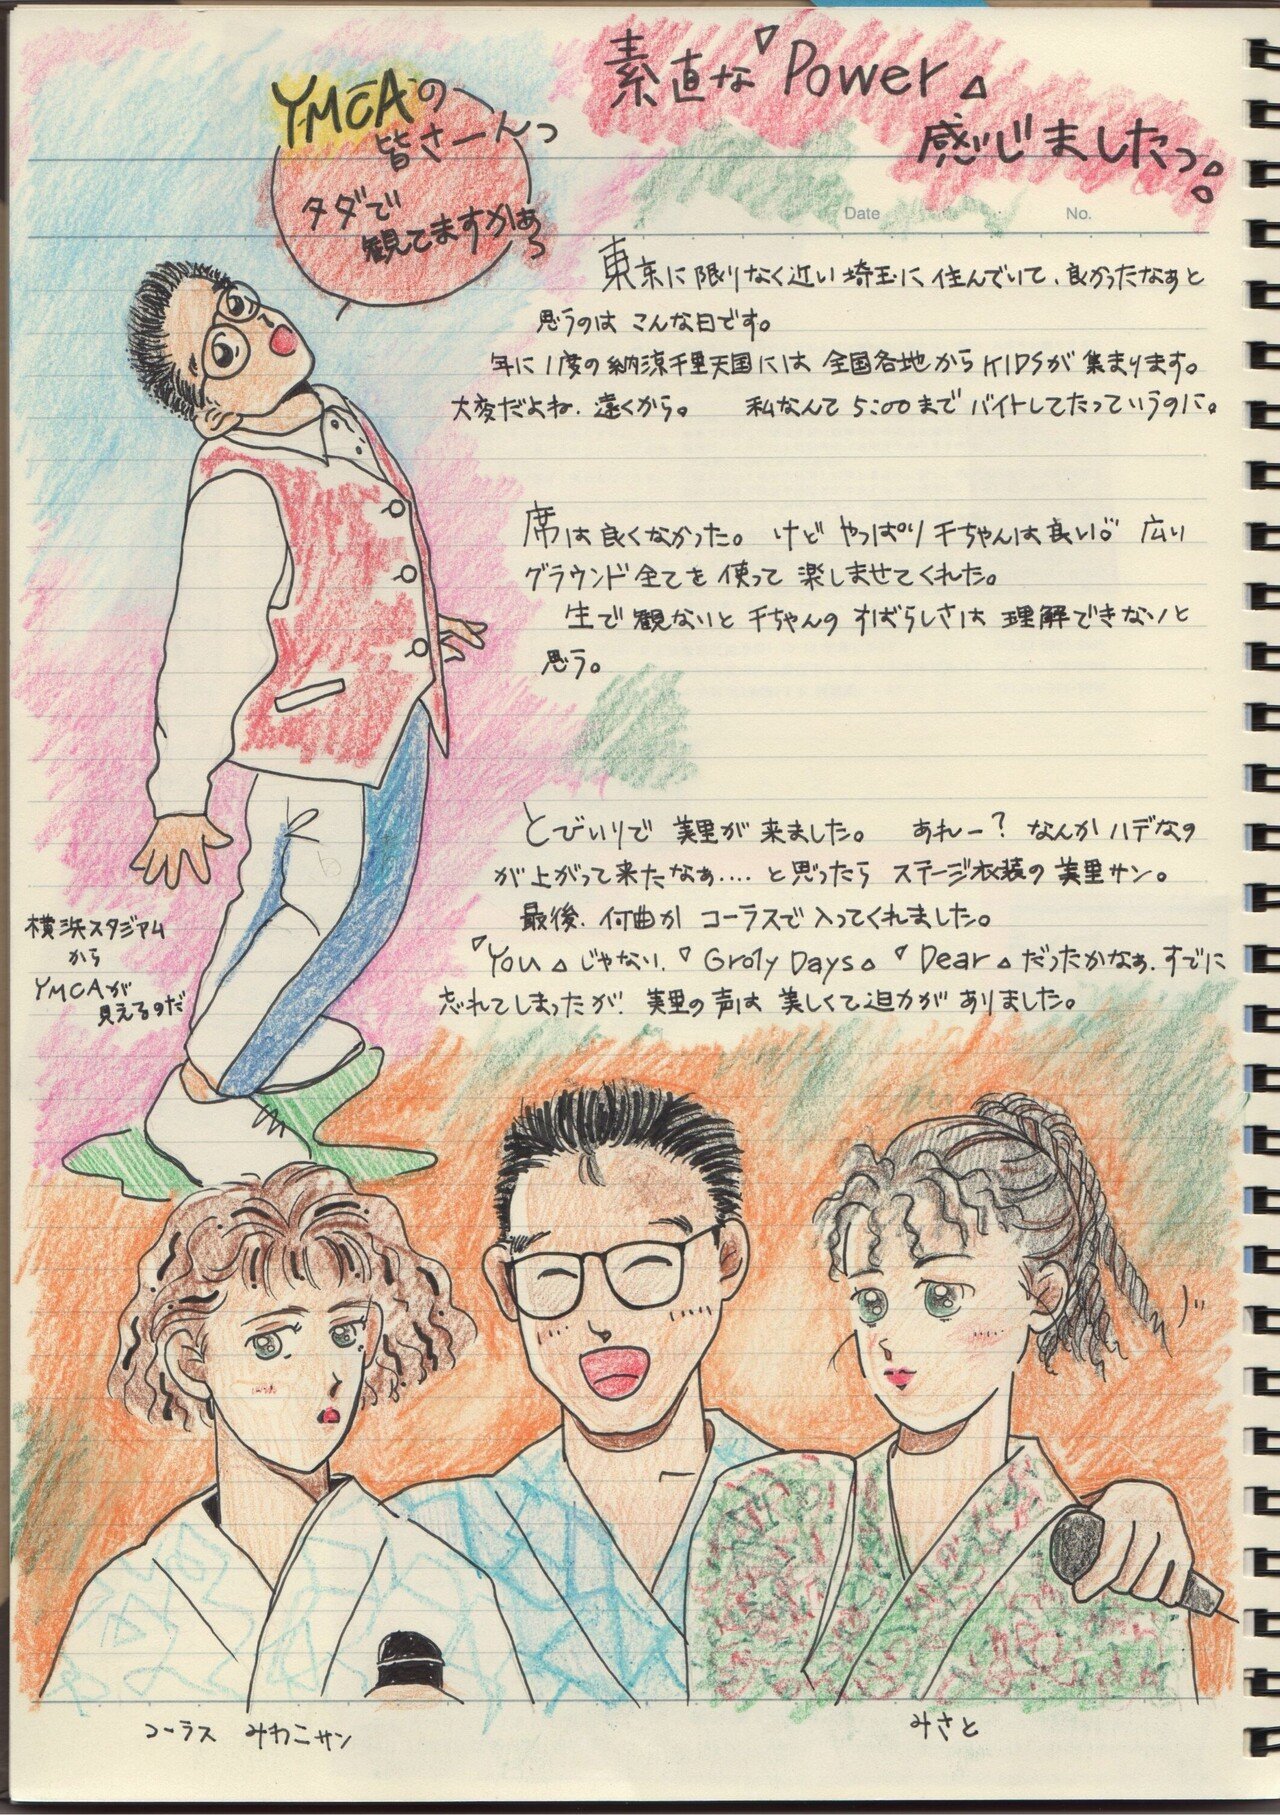 素直な『Power』
感じましたっ。
YMCAの
皆さーんっ
タダで
観てますかぁっ
Date
No.
東京に限りなく近い埼玉に住んでいて、良かったなぁと
思うのは こんな日です。
年に1度の納涼千里天国には 全国各地からKIDSが集まります。
大変だよね、遠くから。 私なんて 5:00まで バイトしてたっていうのに。
席は良くなかった。 けど やっぱり 千ちゃんは良い。 広い
グラウンド全てを使って 楽しませてくれた。
生で観ないと 千ちゃんの すばらしさは 理解できないと
思う。
とびいりで 美里が来ました。 あれー? なんか ハデなの
が上がって来たなぁ.... と思ったら ステージ衣装の 美里サン。
最後、何曲か コーラスで入ってくれました。
『You』じゃない、『Groly Days』『Dear』だったかなぁ、すでに
忘れてしまったが、美里の声は 美しくて迫力がありました。
横浜スタジアム
から
YMCAが
見えるのだ
コーラス みわこサン
みさと